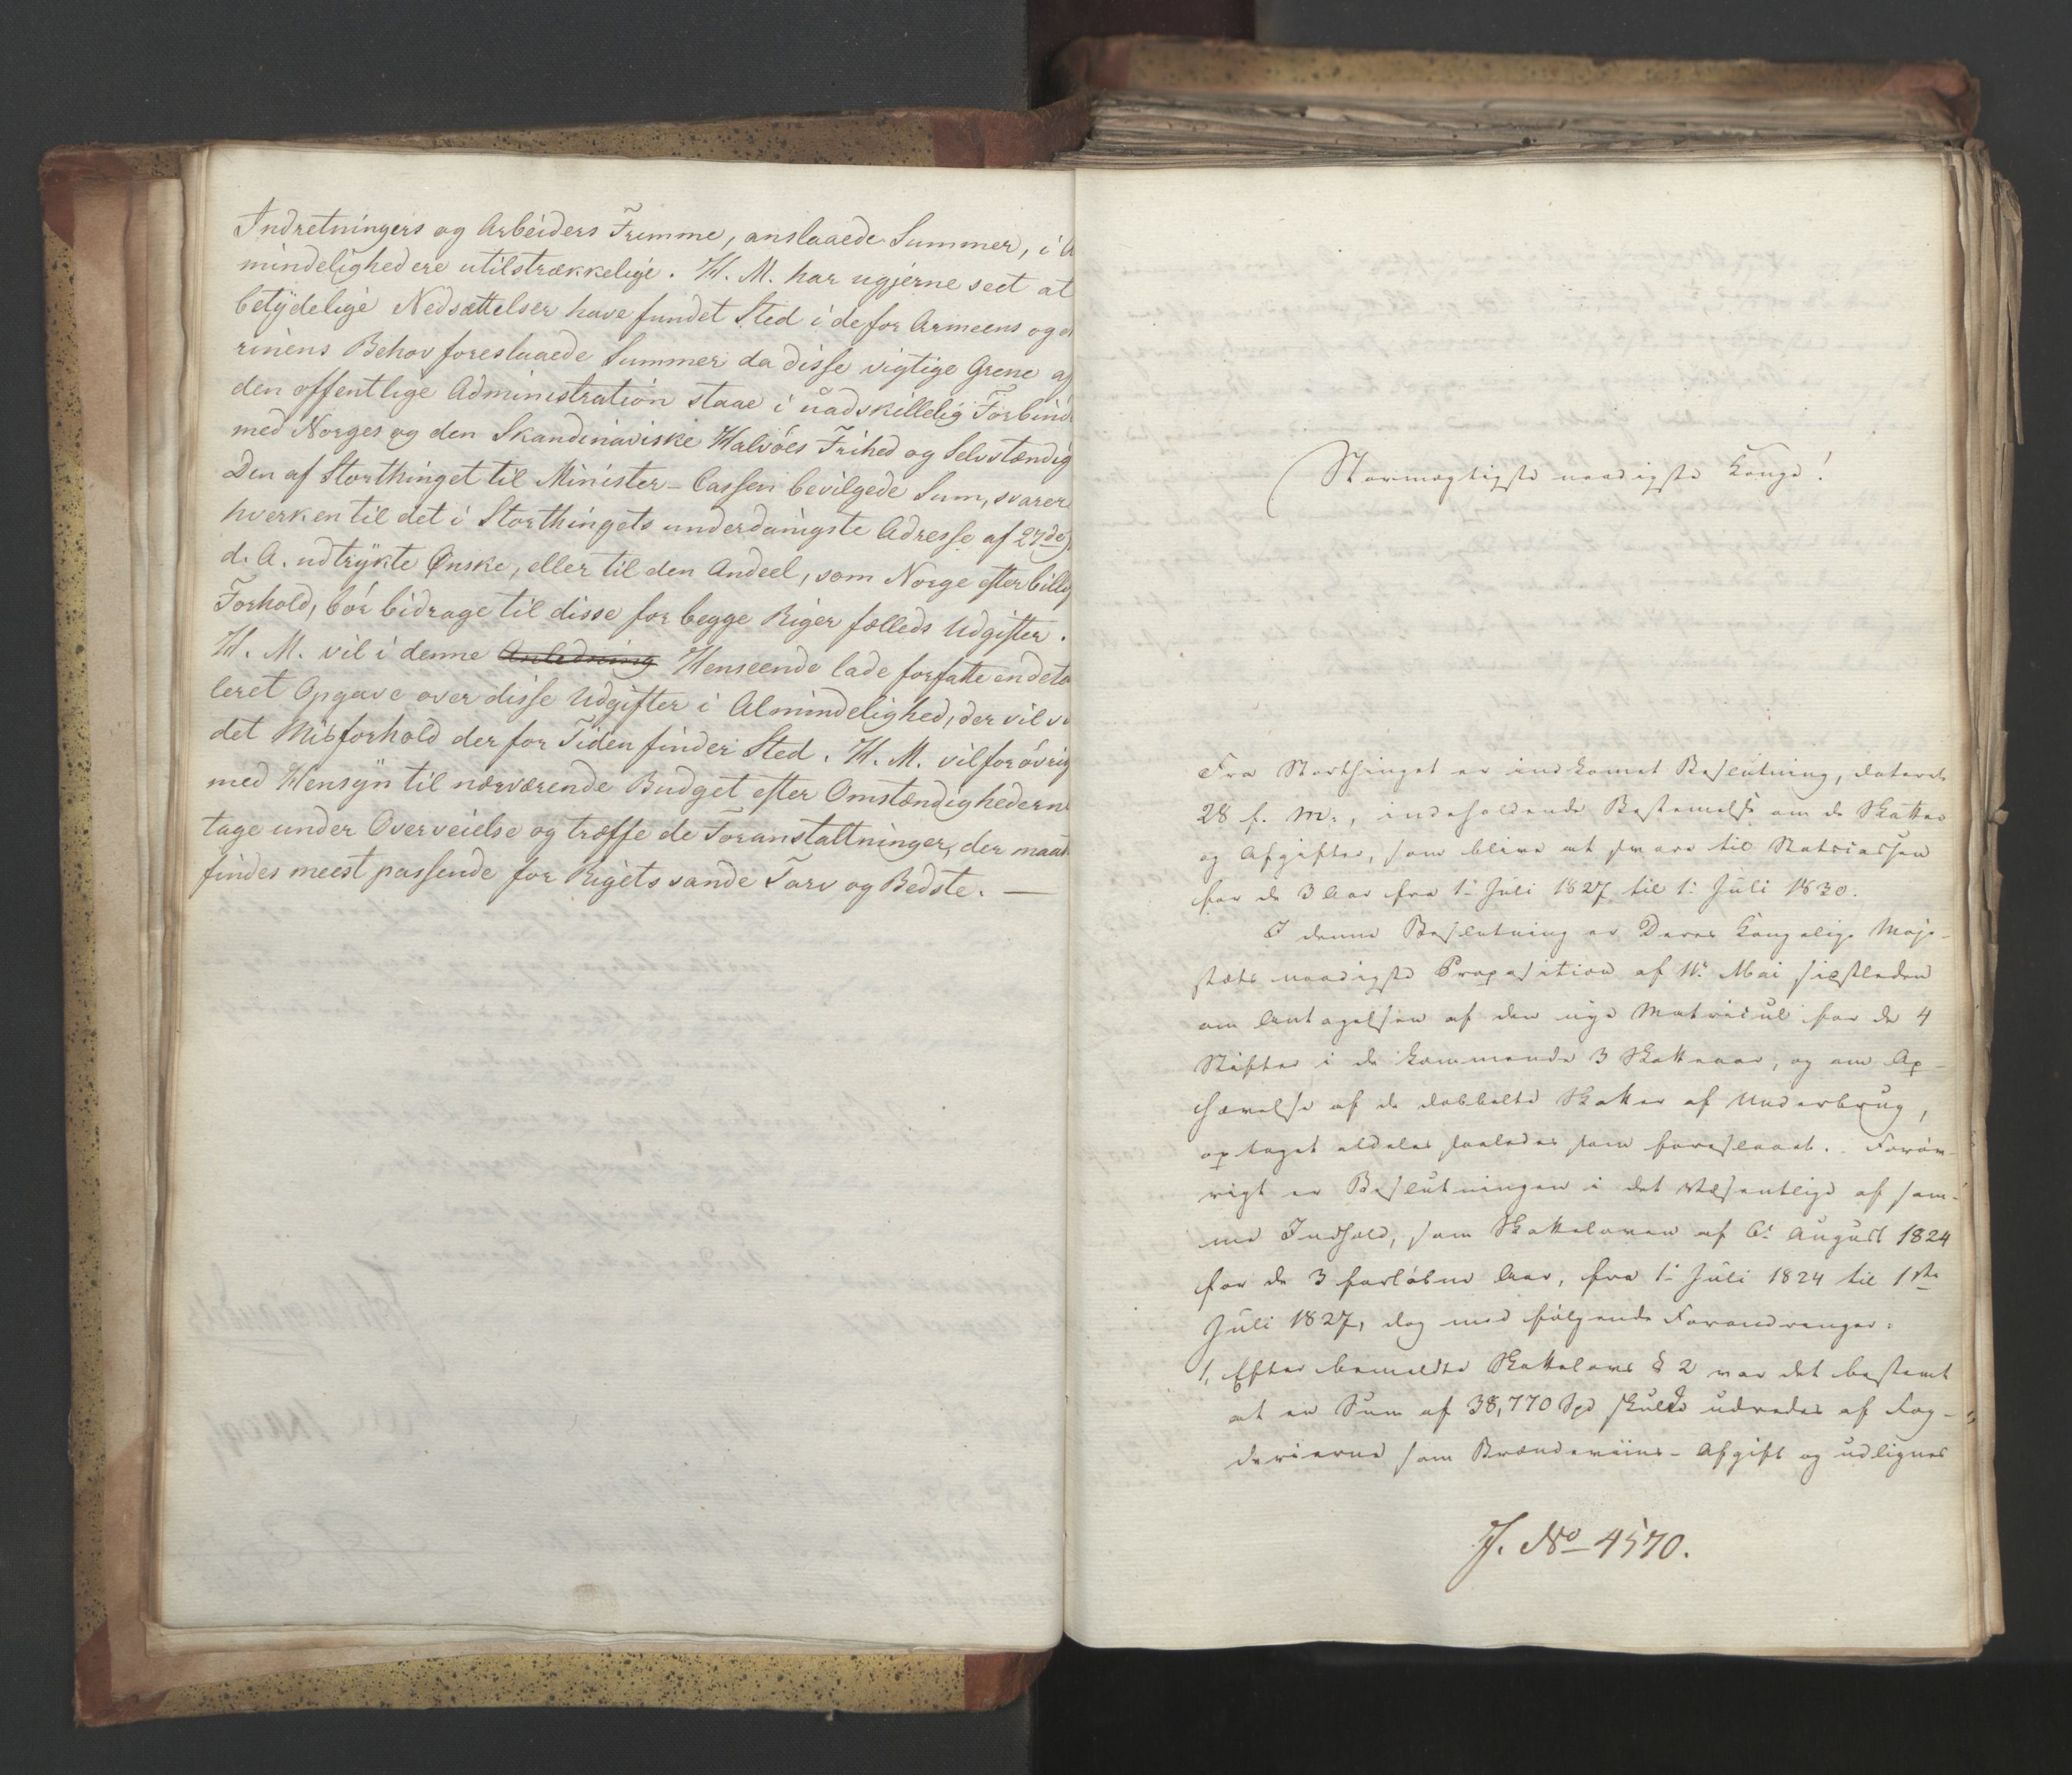 Indretningers og Arbeiders Fremme, anslaaede Summer, i A
mindelighed ere utilstrækkelige. H. M. har ugjerne seet at
betydelige Nedsættelser have fundet Sted i de for Armeens og
rinens Behov foreslaaede Summer da disse vigtige Grene af
den offentlige Administration staae i uadskillelig Forbind
med Norges og den Skandinaviske Halvöes Frihed og Selvstændig
Den af Storthinget til Minister-Cassen bevilgede Sum, svarer
hverken til det i Storthingets underdanigste Adresse af 27de
d. A. udtrykte Ønske, eller til den Andeel, som Norge efter billig
Forhold, bör bidrage til disse for begge Riger fælleds Udgifter.
H. M. vil i denne Anledning Henseende lade forfatte en deta
leret Opgave over disse Udgifter i Almindelighed, der vil vi
det Misforhold der for Tiden finder Sted. H. M. vil forövrig
med Hensyn til nærværende Budget efter Omstændighedern
tage under Overveielse og træffe de Foranstaltninger, der maat
findes meest passende for Rigets sande Tarv og Bedste. —
Stormægtigste naadigste Konge!
Fra Storthinget er indkomet Beslutning, dateret
28 f. M., indeholdende Bestemelse om de Skatter
og Afgifter, som blive at svare til Statscassen
for de 3 Aar fra 1: Juli 1827 til 1: Juli 1830.
I denne Beslutning er Deres Kongelige Maje-
stæts naadigste Proposition af 11: Mai sidstleden
om Antagelsen af den nye Matricul for de 4
Stifter i de kommende 3 Skatteaar, og om Op-
hævelse af de dobbelte Skatter af Underbrug,
optaget aldeles saaledes som foreslaaet. Forøv-
rigt er Beslutningen i det Væsentlige af sam-
me Indhold, som Skatteloven af 6: August 1824
for de 3 forløbne Aar, fra 1: Juli 1824 til 1ste
Juli 1827, dog med følgende Forandringer:
1, Efter bemeldte Skattelovs § 2 var det bestemt
at en Sum af 38,770 Spd skulde udredes af Fog-
derierne som Brændeviins-Afgift og udlignes
J. No 4570.